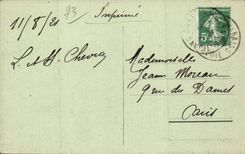 11/8/21
93
Imprimé
L. et H. Chevry
Mademoiselle
Jeanne Moreau
9 rue des Dames
Paris
5